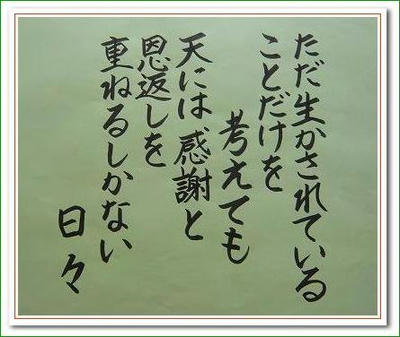 ただ生かされている
ことだけを
考えても
天には感謝と
恩返しを
重ねるしかない
日々